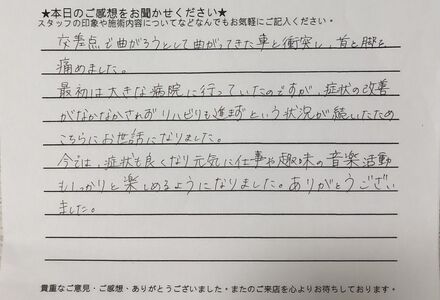 ★本日のご感想をお聞かせください★
スタッフの印象や施術内容についてなどなんでもお気軽にご記入ください・
交差点で曲がろうとして曲がってきた車と衝突し、首と腰を
痛めました。
最初は大きな病院に行っていたのですが、症状の改善
がなかなかされず リハビリも進まずという状況が続いたため
こちらにお世話になりました。
今では、症状も良くなり元気に仕事や趣味の音楽活動
もしっかりと楽しめるようになりました。ありがとうござい
ました。
貴重なご意見・ご感想・ありがとうございました・またのご来店を心よりお待ちしております・